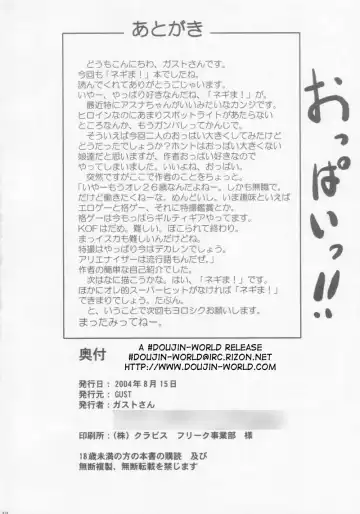 あとがき
どうもこんにちわ、ガストさんです。
今回も「ネギま！」本でしたね。
読んでくれてありがとうございます。
いやー、やっぱり好きなんだね、「ネギま！」が。
最近特にアスナちゃんがいいみたいなカンジです。
ヒロインなのにあまりスポットライトがあたらない
ところなんか、もうガンバレってかんじで。
そういえば今回二人のおっぱい大きくしてみたけど
どうだったでしょうか？ホントはおっぱい大きくない
娘達だと思いますが、作者おっぱい好きなので
やってしまいました。いいよね、おっぱい。
突然ですがここで作者のことをちょっと。
「いやーもうオレ２６歳なんだよねー。しかも無職で。
だけど働きたくねーな、めんどいし。いま趣味といえば
エロゲーと格ゲー、それに特撮鑑賞とか。
格ゲーは今もっぱらギルティギアやってます。
KOFはだめ、難しい、ぼこられて終わり。
まっイスカも難しいんだけどね。
特撮はやっぱり今はデカレンでしょう。
アリエナイザーは流行語もんだぜ。」
作者の簡単な自己紹介でした。
次はなに描こうかな。はい、「ネギま！」です。
ほかにオレ的スーパーヒットがなければ「ネギま！」
できまりでしょう。たぶん。
と、いうことで次回もヨロシクお願いします。
まったみってねー。
おっぱいっ!!
奥付
A #DOUJIN-WORLD RELEASE
#DOUJIN-WORLD@IRC.RIZON.NET
発行日：2004年8月15日
発行元：GUST
発行者：ガストさん
印刷所：（株）クラビス　フリーク事業部　様
18歳未満の方の本書の購読　及び
無断複製、無断転載を禁じます